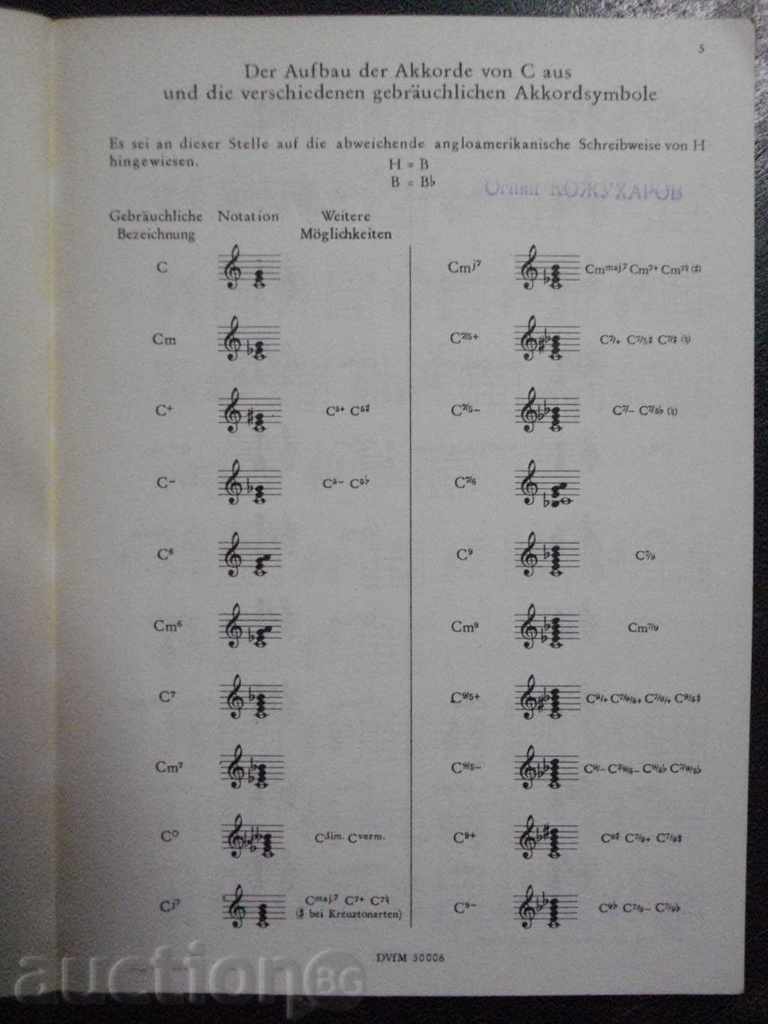 5
Der Aufbau der Akkorde von C aus
und die verschiedenen gebräuchlichen Akkordsymbole
Es sei an dieser Stelle auf die abweichende angloamerikanische Schreibweise von H
hingewiesen.
H = B
B = B♭
КОЖУХАРОВ
Gebräuchliche Notation Weitere
Bezeichnung Möglichkeiten
C
Cm
C+
C5+ C5♯
C–
C5– C5♭
C6
Cm6
C7
Cm7
C0
Cdim. Cverm.
Cj7
Cmaj.7 C7+ C7♮
(♯ bei Kreuztonarten)
Cmj7
Cmmaj.7 Cm7+ Cm7♮ (♯)
C7/5+
C7/+ C7/5♯ C7/♯ (♮)
C7/5–
C7/– C7/5♭ (♮)
C7/6
C9
C7/9
Cm9
Cm7/9
C9/5+
C9/+ C7/9/5+ C7/9/+ C9/5♯
C9/5–
C9/– C7/9/5– C9/5♭ C7/9/5♭
C9+
C9♯ C7/9+ C7/9♯
C9–
C9♭ C7/9– C7/9♭
DVfM 30006
auctionBG